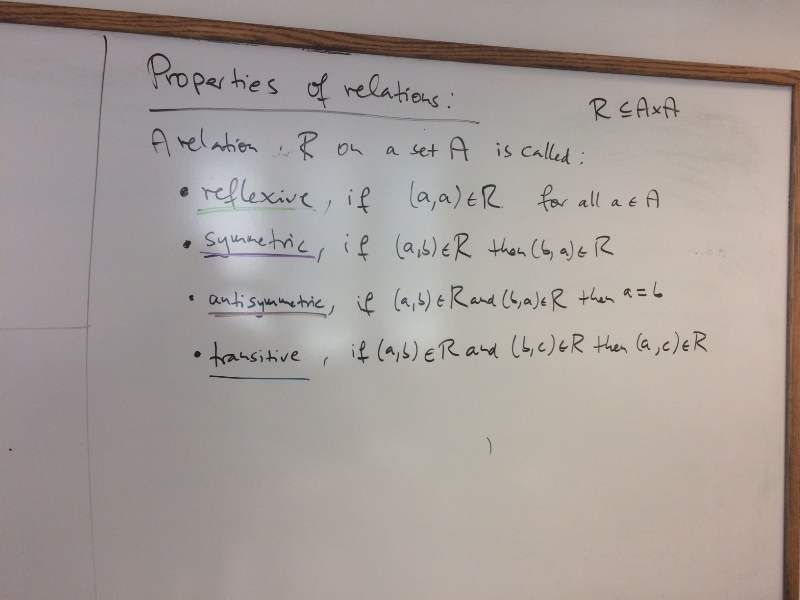 Properties of relations:
R ⊆ A×A
A relation R on a set A is called:
• reflexive, if (a,a) ∈ R for all a ∈ A
• symmetric, if (a,b) ∈ R then (b,a) ∈ R
• antisymmetric, if (a,b) ∈ R and (b,a) ∈ R then a = b
• transitive, if (a,b) ∈ R and (b,c) ∈ R then (a,c) ∈ R